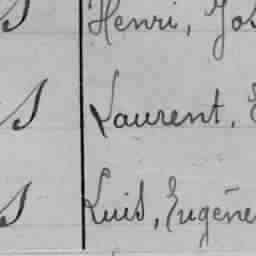 s Henri, Jos
s Laurent, E
s Luis, Eugène